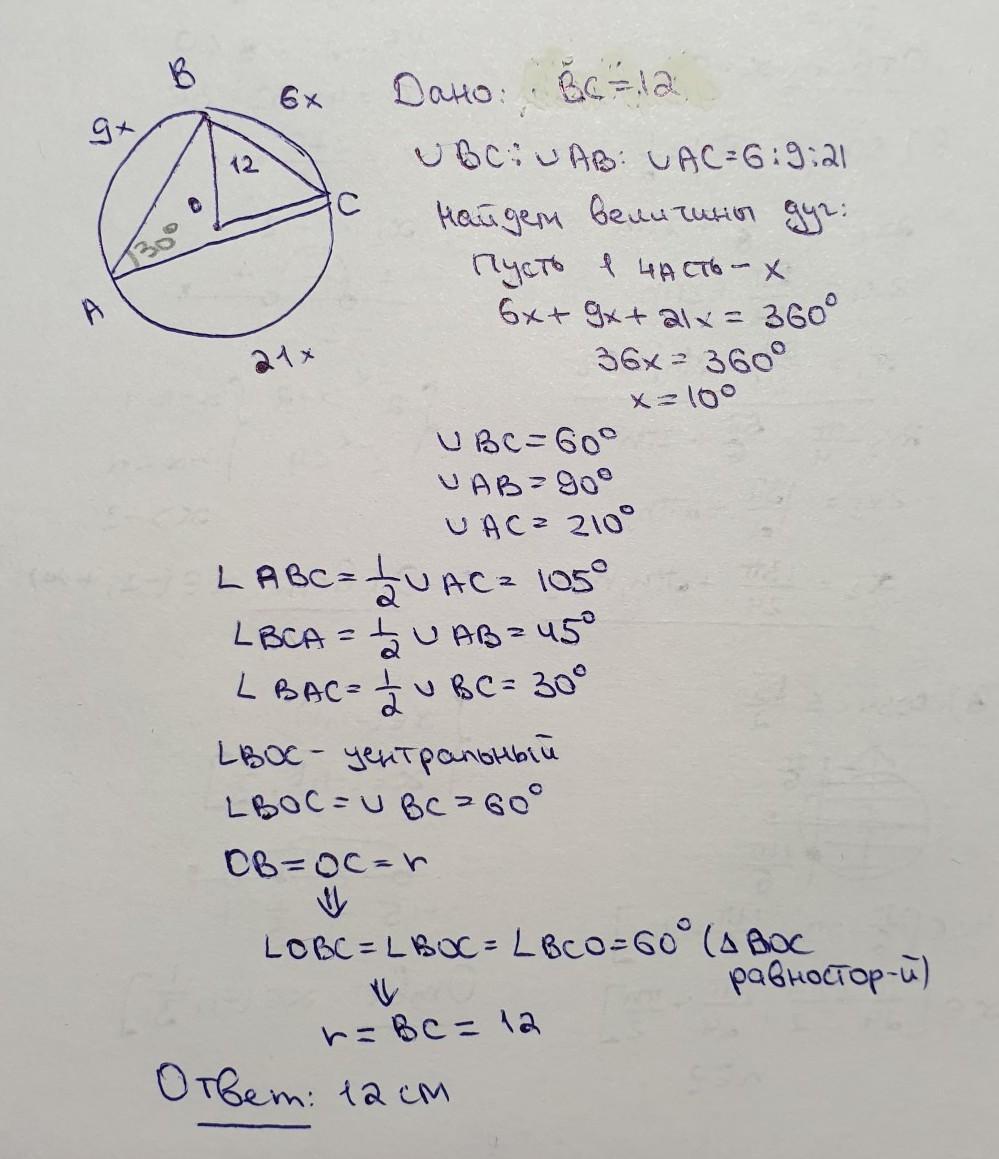 B
6x
9x
12
0
C
30°
A
21x
Дано: BC = 12
∪BC : ∪AB : ∪AC = 6 : 9 : 21
Найдем величины дуг:
Пусть 1 часть - x
6x + 9x + 21x = 360°
36x = 360°
x = 10°
∪BC = 60°
∪AB = 90°
∪AC = 210°
∠ABC = 1/2 ∪AC = 105°
∠BCA = 1/2 ∪AB = 45°
∠BAC = 1/2 ∪BC = 30°
∠BOC - центральный
∠BOC = ∪BC = 60°
OB = OC = r
⇓
∠OBC = ∠BOC = ∠BCO = 60° (△BOC
равностор-й)
⇓
r = BC = 12
Ответ: 12 см